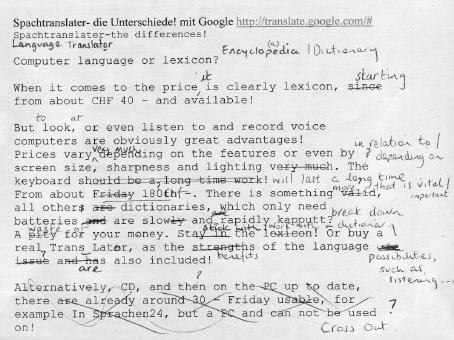 Spachtranslater- die Unterschiede! mit Google http://translate.google.com/#
Spachtranslater-the differences!
Language Translator
Encyclopedia / Dictionary
Computer language or lexicon?
it
starting
When it comes to the price is clearly lexicon, since
from about CHF 40 - and available!
to at
But look, or even listen to and record voice
computers are obviously great advantages!
in relation to /
very much
Prices vary depending on the features or even by
depending on
screen size, sharpness and lighting very much. The
keyboard should be a long time work! will last a long time
From about Friday 180th|-. There is something valid,
more
that is vital /
important
all others are dictionaries, which only need
batteries and are slowly and rapidly kapputt?
are
break down
waste of
stick with
work with a dictionary
A pity for your money. Stay in the lexicon! Or buy a
real Trans Lator, as the strengths of the language
benefits
issue and has also included!
are
possibilities,
such as
listening...
?
Alternatively, CD, and then on the PC up to date,
there are already around 30 - Friday usable, for
example In Sprachen24, but a PC and can not be used
on!
?
Cross Out.